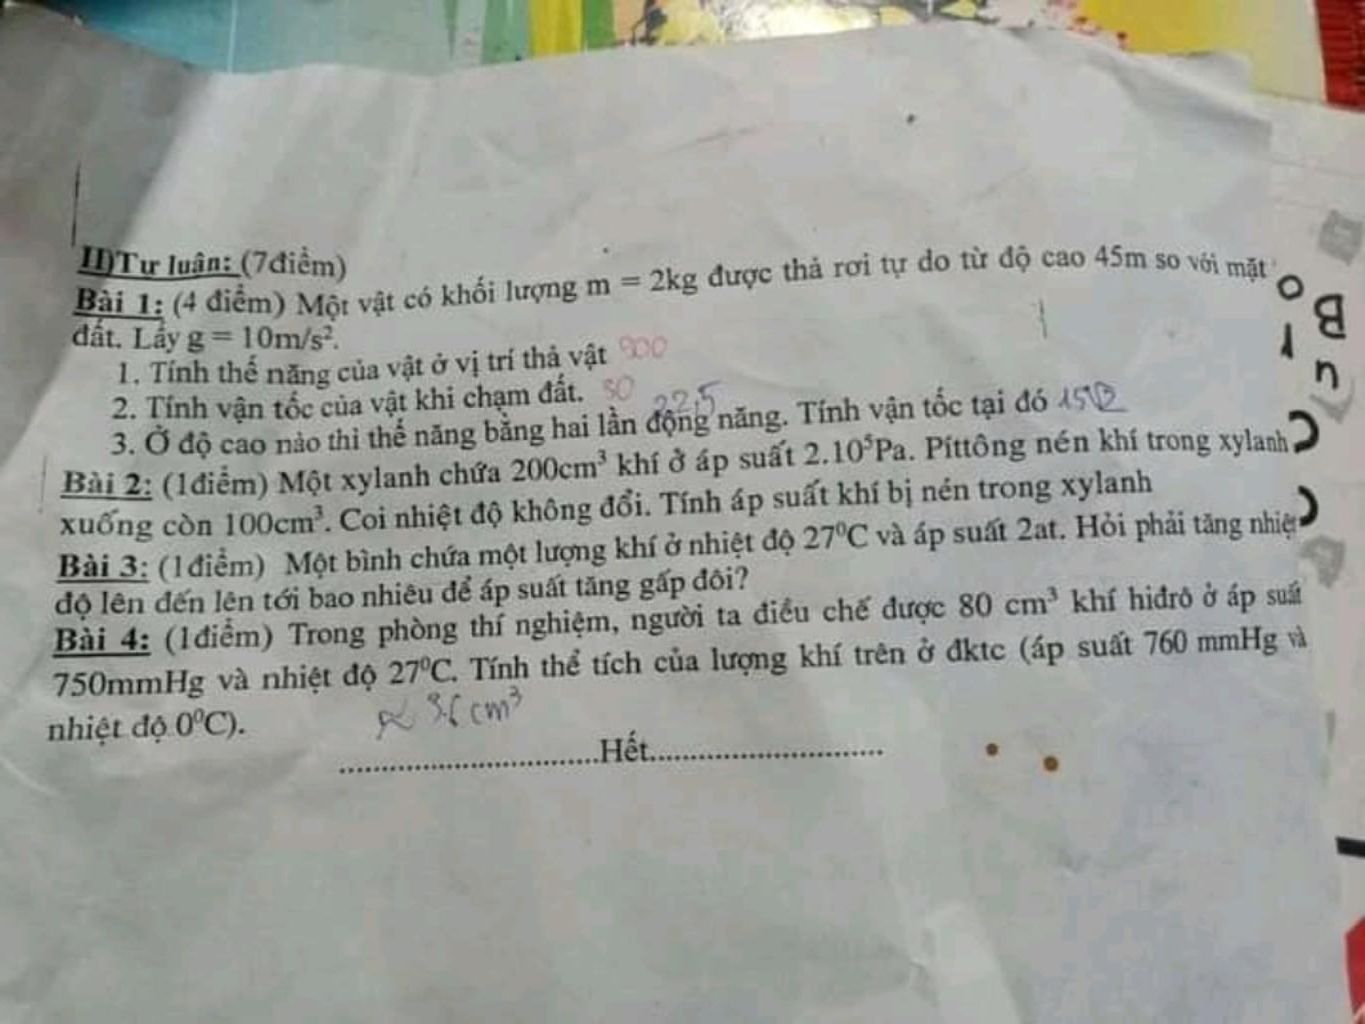 II)Tự luận: (7điểm)
Bài 1: (4 điểm) Một vật có khối lượng m = 2kg được thả rơi tự do từ độ cao 45m so với mặt
đất. Lấy g = 10m/s².
1. Tính thế năng của vật ở vị trí thả vật 900
2. Tính vận tốc của vật khi chạm đất. 30
22,5
3. Ở độ cao nào thì thế năng bằng hai lần động năng. Tính vận tốc tại đó
Bài 2: (1điểm) Một xylanh chứa 200cm³ khí ở áp suất 2.10⁵Pa. Píttông nén khí trong xylanh
xuống còn 100cm³. Coi nhiệt độ không đổi. Tính áp suất khí bị nén trong xylanh
Bài 3: (1điểm) Một bình chứa một lượng khí ở nhiệt độ 27⁰C và áp suất 2at. Hỏi phải tăng nhiệt
độ lên đến lên tới bao nhiêu để áp suất tăng gấp đôi?
Bài 4: (1điểm) Trong phòng thí nghiệm, người ta điều chế được 80 cm³ khí hiđrô ở áp suất
750mmHg và nhiệt độ 27⁰C. Tính thể tích của lượng khí trên ở đktc (áp suất 760 mmHg và
nhiệt độ 0⁰C).
cm³
..............................Hết............................